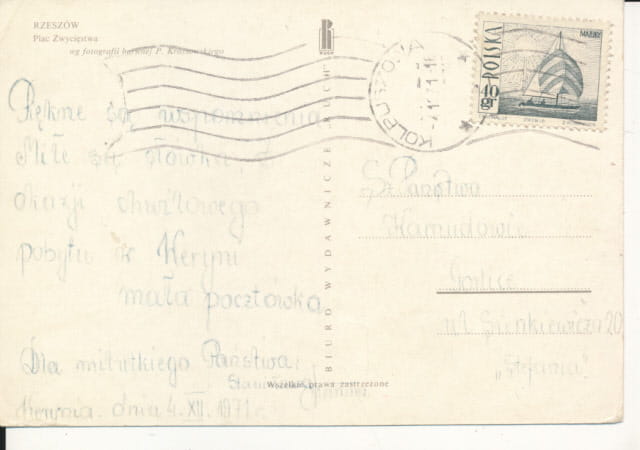 RZESZÓW
Plac Zwycięstwa
wg fotografii barwnej P. Krassowskiego
R
RUCH
KOLBUSZOWA
POLSKA
40 gr
BIURO WYDAWNICZE „RUCH”
Piękne są wspomnienia
Miłe są słówka, z
okazji chwilowego
pobytu w
mała pocztówka
Dla milutkiego Państwa
dnia 4. XII. 1971 r.
Wszelkie prawa zastrzeżone
Sz Państwo
Gorlice
ul Sienkiewicza 20
„Stefania”